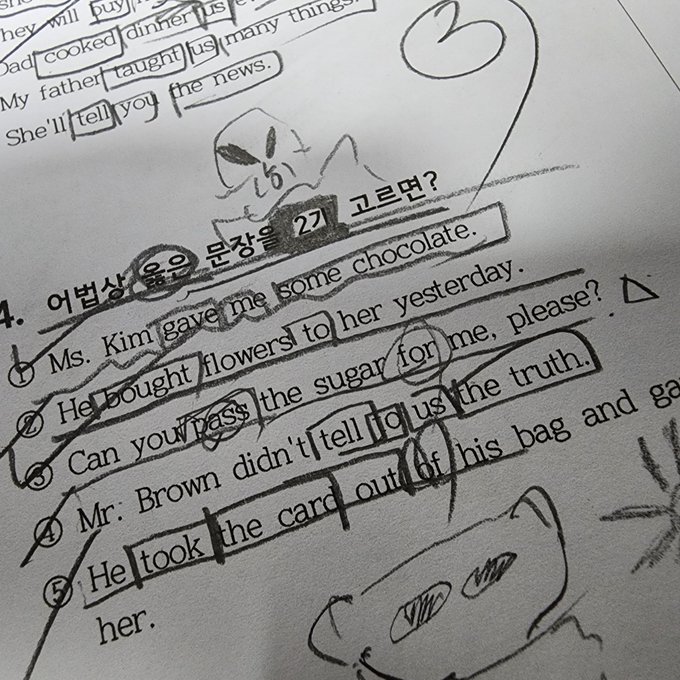 They will buy
Dad cooked dinner us
My father taught us many things.
She'll tell you the news.
3
4. 어법상 옳은 문장을 2개 고르면?
① Ms. Kim gave me some chocolate.
② He bought flowers to her yesterday.
③ Can you pass the sugar for me, please?
④ Mr. Brown didn't tell to us the truth.
⑤ He took the card out of his bag and ga
her.